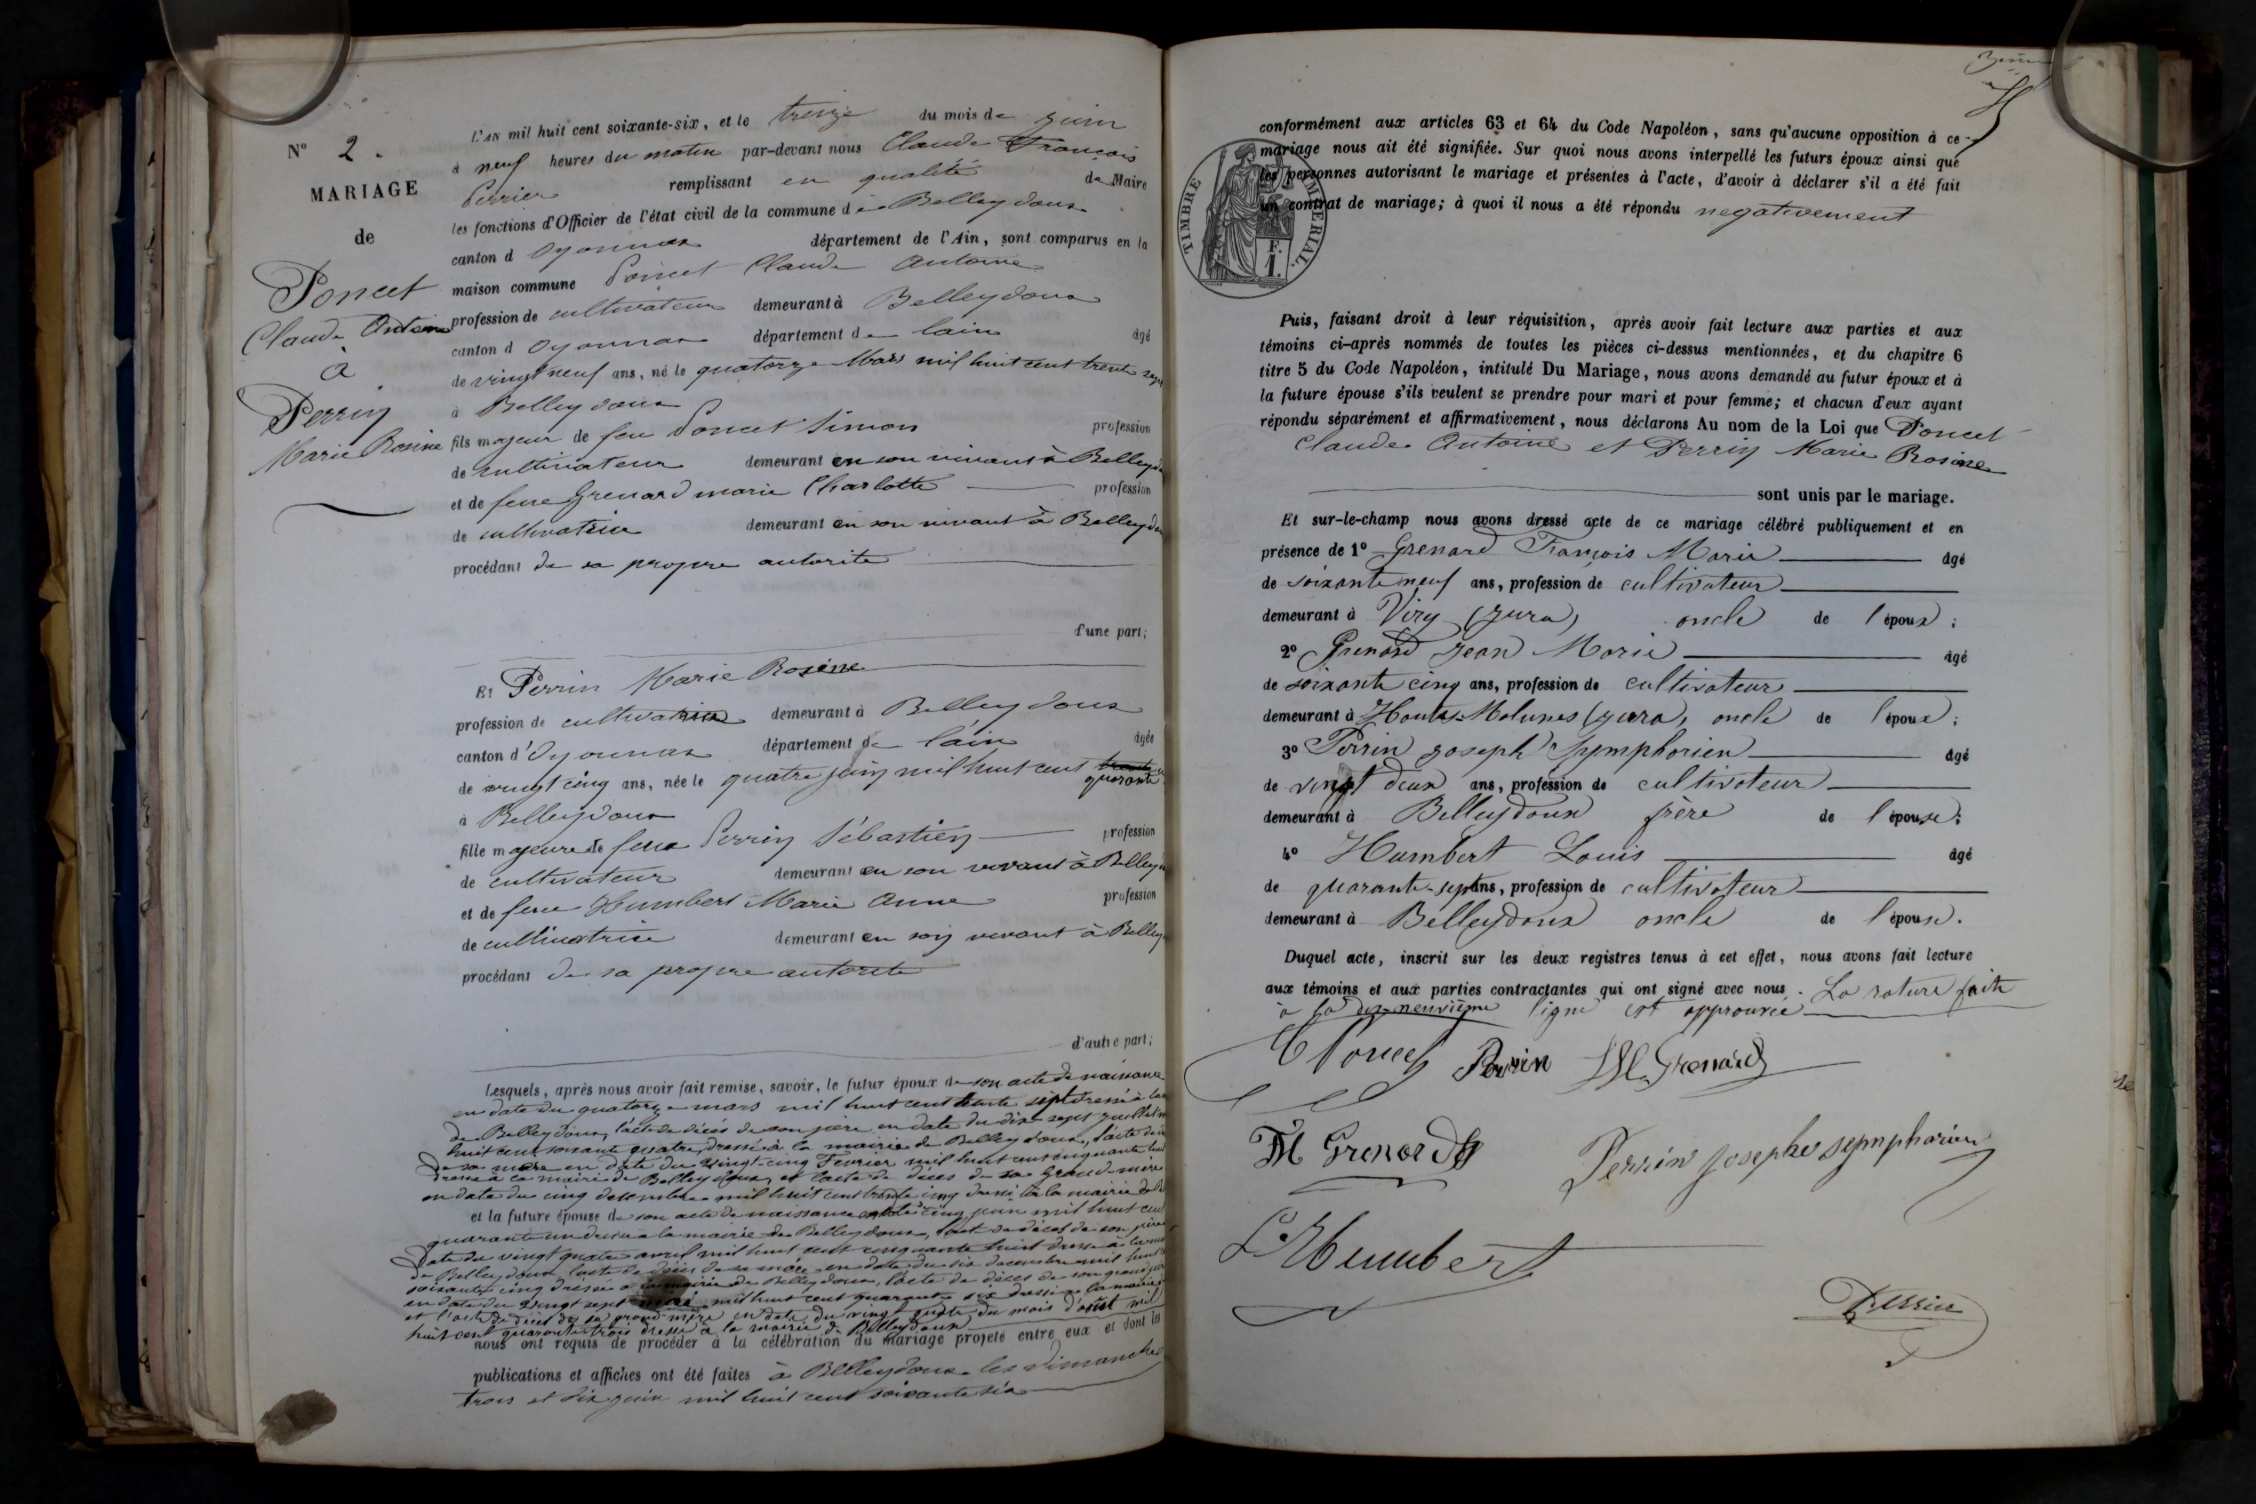 N° 2.
MARIAGE
de
Poncet
Claude Antoine
à
Perrin
Marie Rosine
L'AN mil huit cent soixante-six, et le treize du mois de juin
à neuf heures du matin par-devant nous Claude François
Perrier remplissant en qualité de Maire
les fonctions d'Officier de l'état civil de la commune de Belleydoux
canton d Oyonnax département de l'Ain, sont comparus en la
maison commune Poncet Claude Antoine
profession de cultivateur demeurant à Belleydoux
canton d Oyonnax département de lain âgé
de vingt neuf ans, né le quatorze Mars mil huit cent trente sept
à Belleydoux
fils majeur de feu Poncet Simon profession
de cultivateur demeurant en son vivant à Belleydo
et de feue Grenard marie Charlotte profession
de cultivatrice demeurant en son vivant à Belleydo
procédant de sa propre autorité
d'une part;
Et Perrin Marie Rosine
profession de cultivatrice demeurant à Belleydoux
canton d'Oyonnax département de l'ain âgée
de vingt cinq ans, née le quatre juin mil huit cent trente
quarante
à Belleydoux
fille majeure de feu Perrin Sébastien profession
de cultivateur demeurant en son vivant à Belley
et de feue Humbert Marie Anne profession
de cultivatrice demeurant en son vivant à Belley
procédant de sa propre autorité
d'autre part;
Lesquels, après nous avoir fait remise, savoir, le futur époux de son acte de naissance
en date du quatorze mars mil huit cent trente sept dressé à la
de Belleydoux, l'acte de décès de son père en date du dix sept juillet m
huit cent soixante quatre, dressé à la mairie de Belleydoux, l'acte de
de sa mère en date du vingt-cinq Fevrier mil huit cent cinquante
dressé à la mairie de Belleydoux, et l'acte de décès de sa Grand-mère
en date du cinq décembre mil huit cent trente cinq dressé à la mairie de B
et la future épouse de son acte de naissance cinq juin mil huit cent
quarante un dressé à la mairie de Belleydoux, l'acte de décès de son père
date du vingt quatre avril mil huit cent cinquante huit dressé à la
de Belleydoux l'acte de décès de sa mère en date du six decembre mil huit
soixante cinq dressé à la mairie de Belleydoux, l'acte de décès de son grand
en date du vingt sept mil huit cent quarante six dressé à la mairie
et l'acte de décès de sa grand mère en date du vingt quatre du mois d'août mil
huit cent quarante trois dressé à la mairie de Belleydoux
nous ont requis de procéder à la célébration du mariage projeté entre eux et dont les
publications et affiches ont été faites à Belleydoux les dimanches
trois et dix juin mil huit cent soixante six
conformément aux articles 63 et 64 du Code Napoléon, sans qu'aucune opposition à ce
mariage nous ait été signifiée. Sur quoi nous avons interpellé les futurs époux ainsi que
les personnes autorisant le mariage et présentes à l'acte, d'avoir à déclarer s'il a été fait
un contrat de mariage; à quoi il nous a été répondu negativement
TIMBRE IMPERIAL.
F.
1.
Puis, faisant droit à leur réquisition, après avoir fait lecture aux parties et aux
témoins ci-après nommés de toutes les pièces ci-dessus mentionnées, et du chapitre 6
titre 5 du Code Napoléon, intitulé Du Mariage, nous avons demandé au futur époux et à
la future épouse s'ils veulent se prendre pour mari et pour femme; et chacun d'eux ayant
répondu séparément et affirmativement, nous déclarons Au nom de la Loi que Poncet
Claude Antoine et Perrin Marie Rosine
sont unis par le mariage.
Et sur-le-champ nous avons dressé acte de ce mariage célébré publiquement et en
présence de 1° Grenard François Marie âgé
de soixante neuf ans, profession de cultivateur
demeurant à Viry (Jura) oncle de l'époux;
2° Grenard Jean Marie âgé
de soixante cinq ans, profession de cultivateur
demeurant à Hautes-Molunes (jura) oncle de l'époux;
3° Perrin joseph symphorien âgé
de vingt deux ans, profession de cultivateur
demeurant à Belleydoux frère de l'épouse;
4° Humbert Louis âgé
de quarante-sept ans, profession de cultivateur
demeurant à Belleydoux oncle de l'épouse.
Duquel acte, inscrit sur les deux registres tenus à cet effet, nous avons fait lecture
aux témoins et aux parties contractantes qui ont signé avec nous. La rature faite
à la dix-neuvième ligne est approuvée
C Poncet Perrin JM Grenard
FM Grenard
Perrin Josephe symphorien
L. Humbert
Perrier